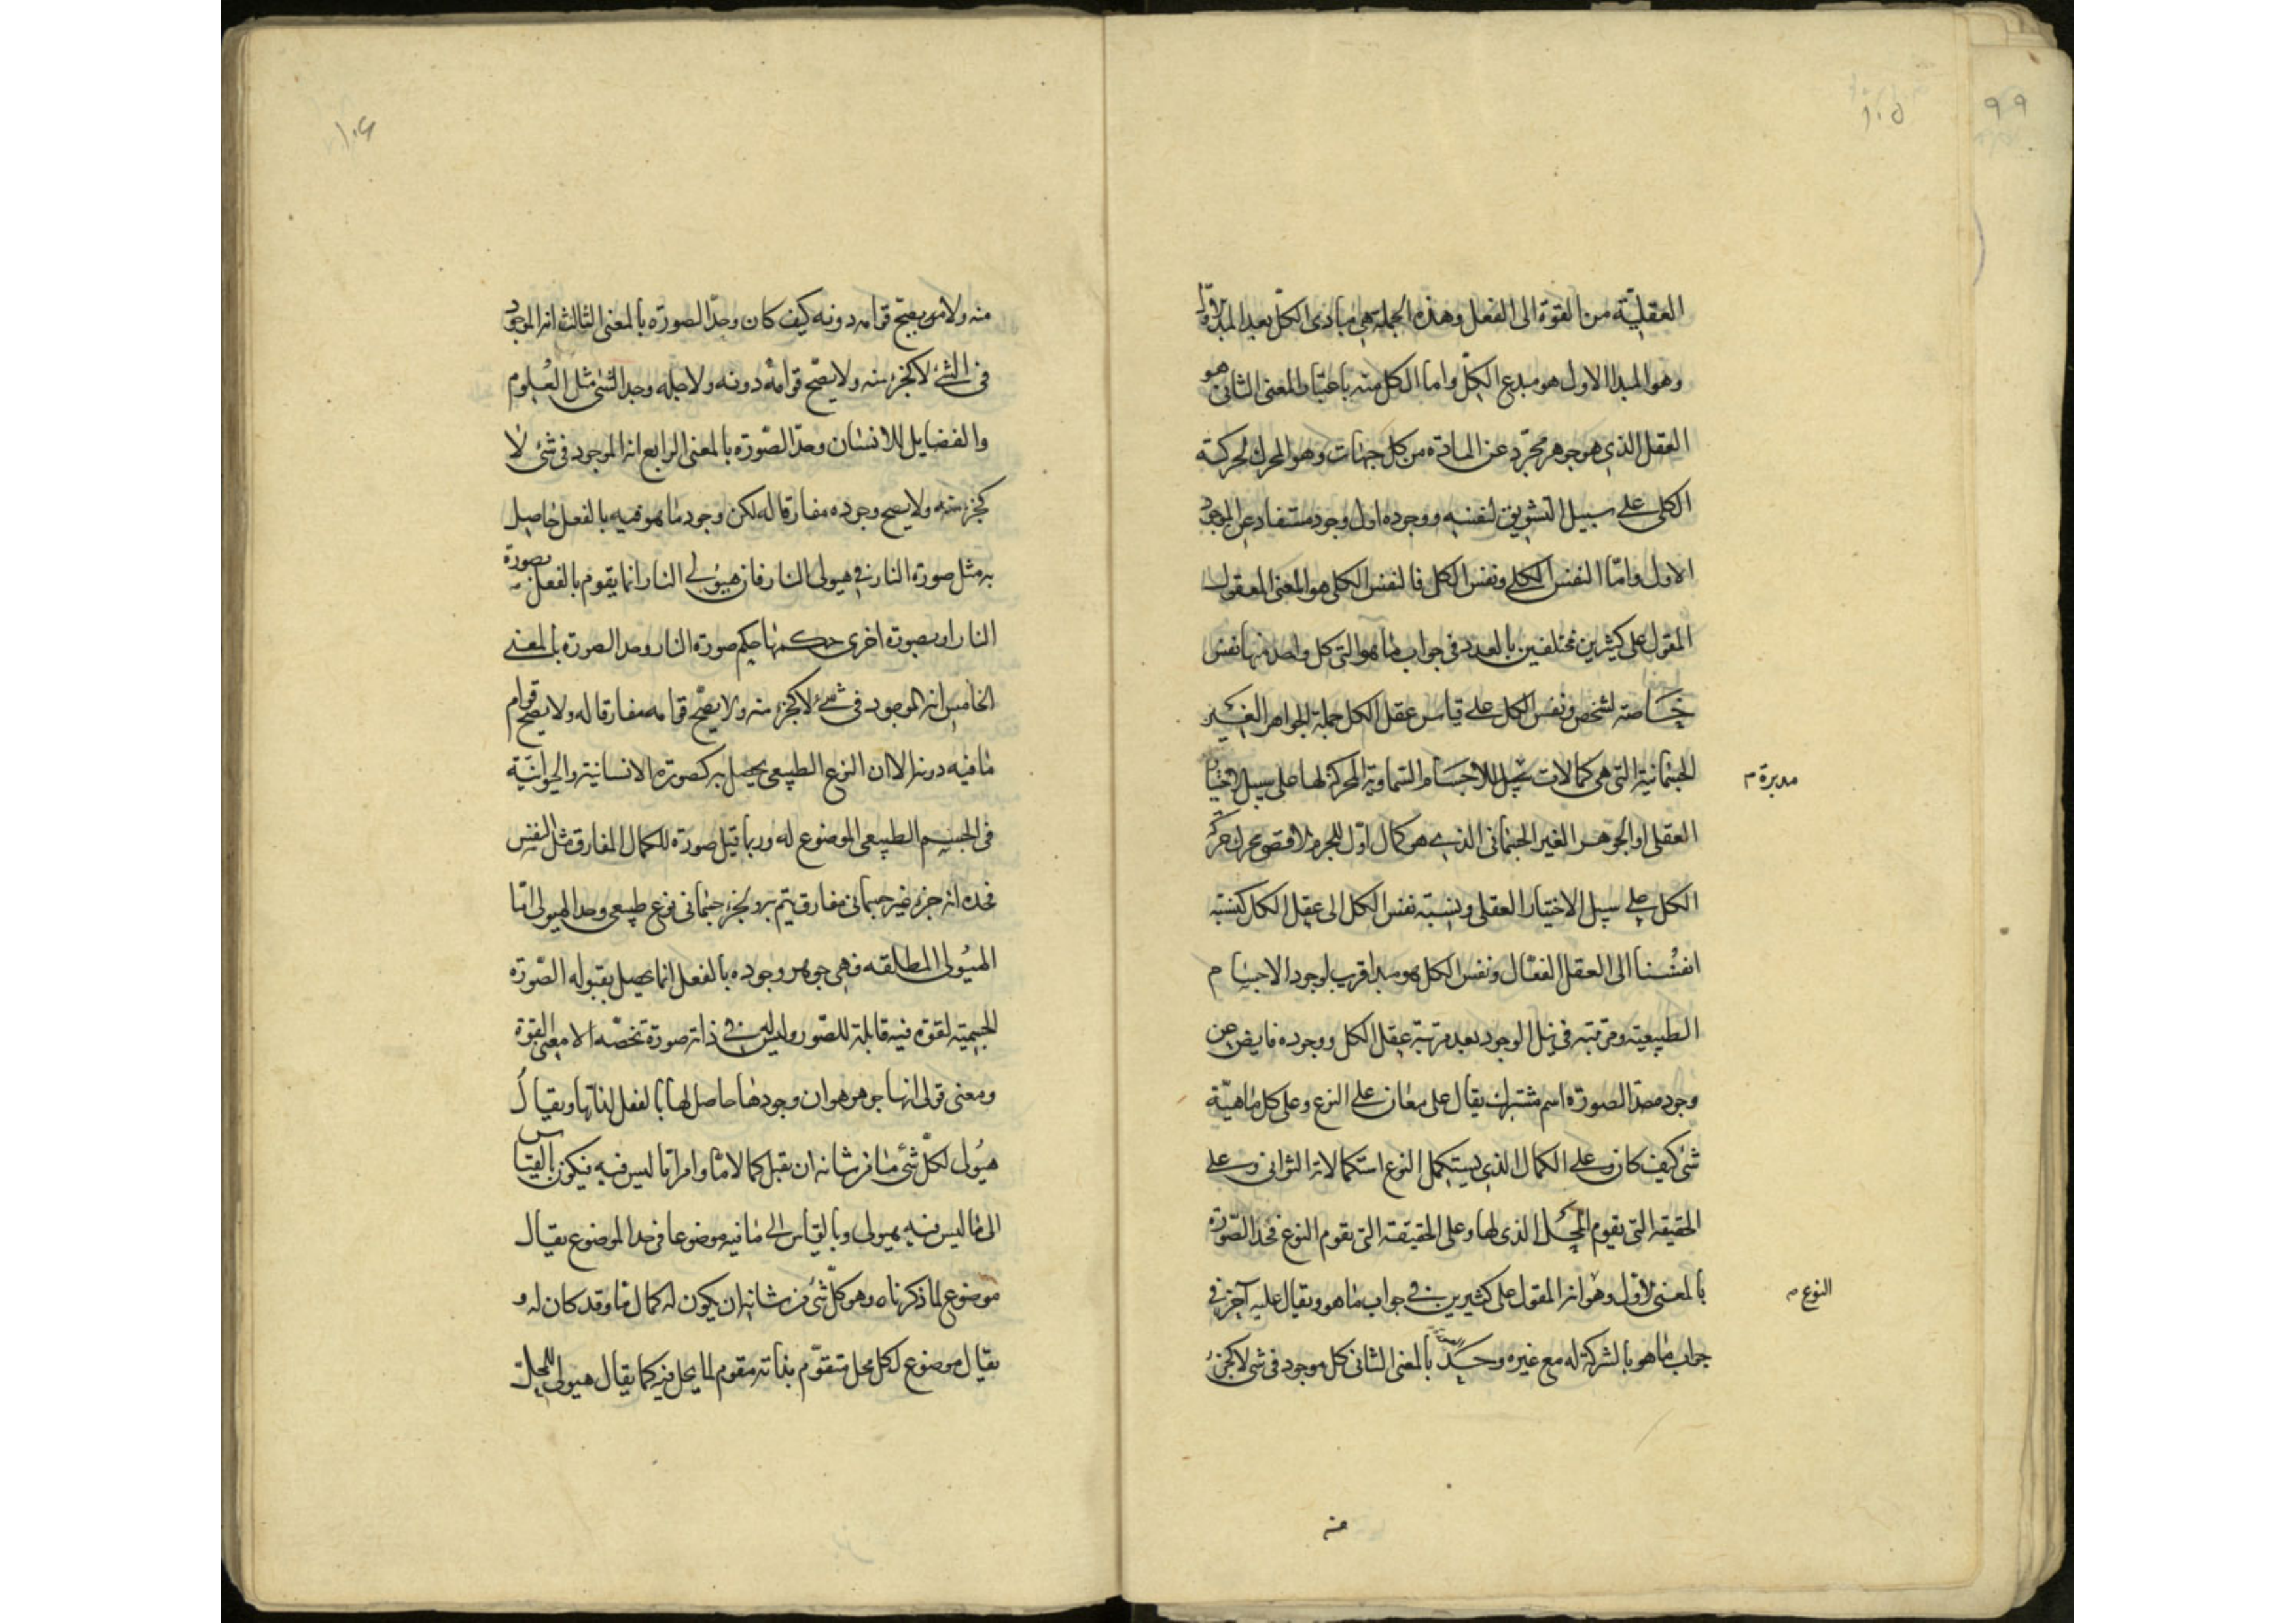 ٩٩
١٠٥
العقلية من القوة الى الفعل وهذه الجملة هى مبادى الكل بعد المبدء الاول
وهو المبدا الاول هو مبدع الكل واما الكل منه باعتبار المعنى الثانى هو
العقل الذى هو جوهر مجرد عن المادة من كل جهات وهو المحرك لحركة
الكلى على سبيل التشويق لنفسه ووجوده اول وجود مستفاد عن الموجود
الاول واما النفس الكلى ونفس الكل فالنفس الكلى هو المعنى المعقول
المقول على كثيرين مختلفين بالعدد فى جواب ما هو التى كل واحد منها نفس
خاصة لشخص ونفس الكل على قياس عقل الكل جملة الجواهر الغير
الجسمانية التى هى كمالات للاجسام السماوية المحركة لها على سبيل الاختيار
مدبرة م
العقلى او الجوهر الغير الجسمانى الذى هو كمال اول للجرم الاقصى محرك حركة
الكل على سبيل الاختيار العقلى ونسبة نفس الكل الى عقل الكل كنسبة
انفسنا الى العقل الفعال ونفس الكل هو مبدا قريب لوجود الاجسام
الطبيعية ومرتبته فى نيل الوجود بعد مرتبة عقل الكل ووجوده فايض عن
وجوده حد الصورة اسم مشترك يقال على معان على النوع وعلى كل ماهية
شئ كيف كان وعلى الكمال الذى يستكمل النوع استكمالاته الثوانى وعلى
الحقيقة التى يقوم المحل الذى لها وعلى الحقيقة التى تقوم النوع فحد الصورة
بالمعنى الاول وهو انه المقول على كثيرين فى جواب ما هو ويقال عليه آخر فى
النوع م
جواب ما هو بالشركة له مع غيره وحد الصورة بالمعنى الثانى كل موجود فى شى لا كجزء
منه
١٠٦
منه ولا يصح قوامه دونه كيف كان وحد الصورة بالمعنى الثالث انه الموجود
فى الشئ لا كجزء منه ولا يصح قوامه دونه ولاجله وجد الشئ مثل العلوم
والفضايل للانسان وحد الصورة بالمعنى الرابع انه الموجود فى شئ لا
كجزء منه ولا يصح وجوده مفارقا له لكن وجود ما هو فيه بالفعل حاصل
به مثل صورة النار فى هيولى النار فان هيولى النار انما يقوم بالفعل بصورة
النار او بصورة اخرى حكمها حكم صورة النار وحد الصورة بالمعنى
الخامس انه الموجود فى شئ لا كجزء منه ولا يصح قوامه مفارقا له ولا يصح قوام
ما فيه دونه الا ان النوع الطبيعى يحصل به كصورة الانسانية والحيوانية
فى الجسم الطبيعى الموضوع له وربما قيل صورة للكمال المفارق مثل النفس
فحده انه جزء غير جسمانى مفارق يتم به وبجزء جسمانى نوع طبيعى وحد الهيولى اما
الهيولى المطلقه فهى جوهر وجوده بالفعل انما يحصل بقبوله الصورة
الجسمية لقوة فيه قابلة للصور وليس فى ذاته صورة تخصه الا معنى القوة
ومعنى قولى انها جوهر هو ان وجودها حاصل لها بالفعل لذاتها ويقال
هيولى لكل شئ ما من شانه ان يقبل كمالا ما وامرا ما ليس فيه فيكون بالقياس
الى ما ليس فيه هيولى وبالقياس الى ما فيه موضوعا فى حد الموضوع يقال
موضوع لما ذكرناه وهو كل شئ من شانه ان يكون له كمال ما وقد كان له و
يقال موضوع لكل محل متقوم بذاته مقوم لما يحل فيه كما يقال هيولى للمحل